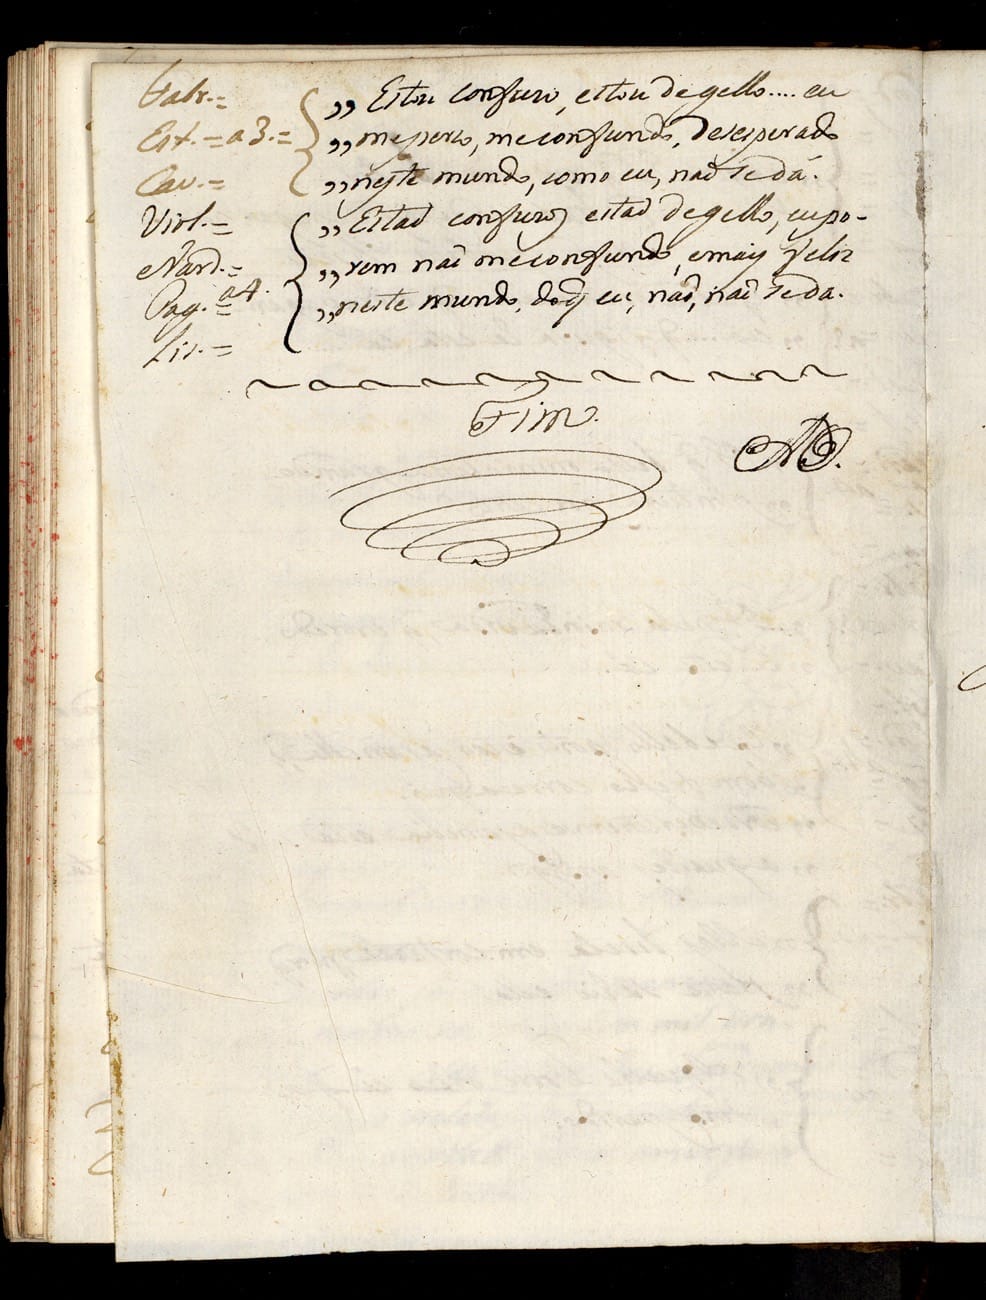 Fabr.=
Est.= a 3.=
Cav.=
,, Estou confuzo, estou de gello.... eu
,, me perco, me confundo, desesperado
,, neste mundo, como eu, naõ se dá.
Viol.=
Nard.=
Pag.= a 4.
Lis.=
,, Estaõ confuzos estaõ de gello, eu po-
,, rem naõ me confundo, e mais feliz
,, neste mundo, do q̃ eu, naõ, naõ se da.
Fim.